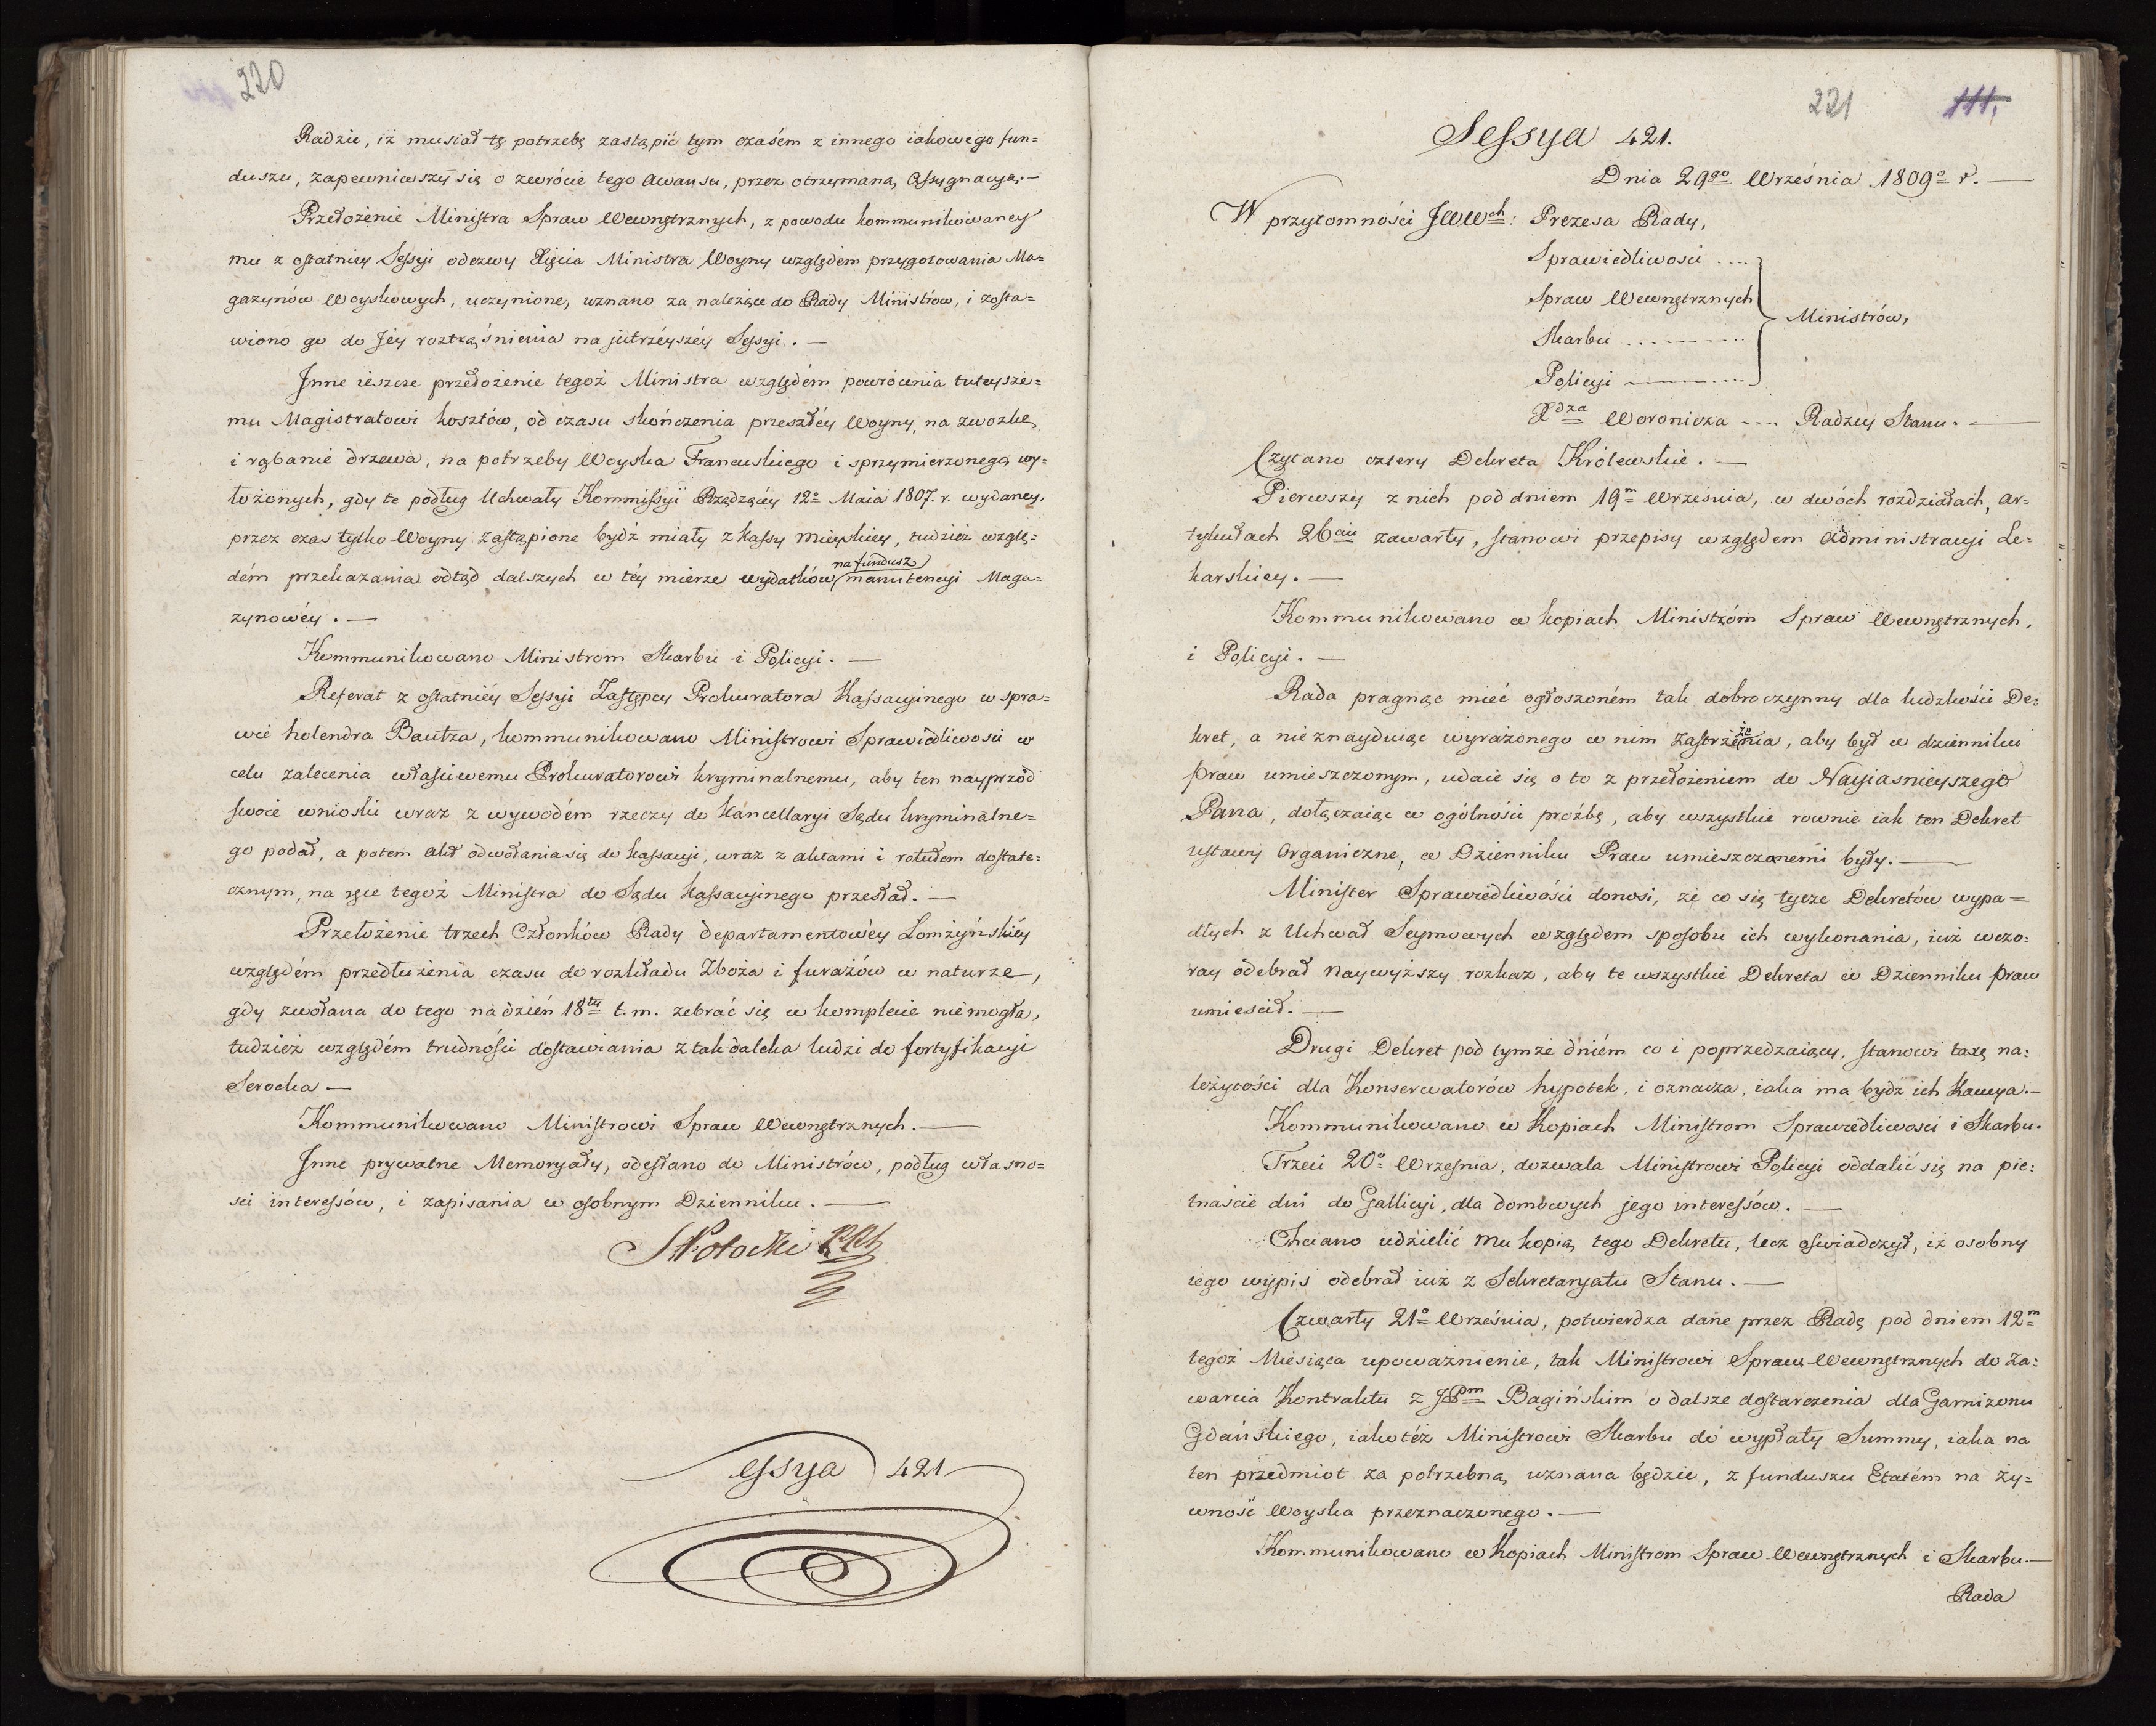 220
Radzie, iż musiał tę potrzebę zastąpić tym czasém z innego iakowego fun=
duszu, zapewniwszy się o zwrócie tego Awansu, przez otrzymaną Assygnacyą.—
Przełożenie Ministra Spraw Wewnętrznych, z powodu kommunikowaney
mu z ostatniey Sessyi odezwy Xięcia Ministra Woyny względem przygotowania Ma=
gazynów Woyskowych, uczynione, uznano za należące do Rady Ministrów, i zosta=
wiono go do Jéy roztrząśnienia na jutrzéyszéy Sessyi. —
Jnne ieszcze przełożenie tegoż Ministra względém powrócenia tuteysze=
mu Magistratowi kosztów, od czasu skończenia przeszłéy Woyny, na zwózkę
i rąbanie drzewa, na potrzeby Woyska Francuskiego i sprzymierzonego wy=
łożonych, gdy te podług Uchwały Kommissyi Rządzącéy 12º Maia 1807. r. wydaney,
przez czas tylko Woyny zastąpione bydź miały z Kassy mieyskiey, tudzież wzglę=
dém przekazania odtąd dalszych w téy mierze wydatków na fundusz manutencyi Maga=
zynowéy. —
Kommunikowano Ministrom Skarbu i Policyi. —
Referat z ostatniéy Sessyi Zastępcy Prokuratora Kassacyinego w spra=
wie holendra Bautza, kommunikowano Ministrowi Sprawiedliwosci w
celu zalecenia właściwemu Prokuratorowi kryminalnemu, aby ten nayprzód
swoie wnioski wraz z wywodém rzeczy do Kancellaryi Sądu kryminalne=
go podał, a potem akt odwołania się do kassacyi, wraz z aktami i rotułem dostate=
cznym, na ręce tegoż Ministra do Sądu Kassacyinego przesłał. —
Przełożenie trzech Członków Rady departamentowéy Lomżyńskiéy
względém przedłużenia czasu do rozkładu Zboża i furażów w naturze,
gdy zwołana do tego na dzień 18ty t. m. zebrać się w komplecie niemogła,
tudzież względém trudnośći dostawiania z tak daleka ludzi do fortyfikacyi
Serocka —
Kommunikowano Ministrowi Spraw Wewnętrznych. —
Jnne prywatne Memoryały, odesłano do Ministrów, podług własno=
sci interessów, i zapisania w osobnym Dzienniku. —
StPotocki PRS
Sessya 421
221
111.
Sessya 421.
Dnia 29go Września 1809º r. —
W przytomności JWWch: Prezesa Rady,
Sprawiedliwosci ....
Spraw Wewnętrznych
Ministrów,
Skarbu ..........
Policyi ..........
Xdza Woronicza .... Radzcy Stanu. —
Czytano cztery Dekreta Królewskie. —
Pierwszy z nich pod dniem 19m Września, w dwóch rozdziałach, ar=
tykułach 26ciu zawarty, stanowi przepisy względem Administracyi Le=
karskiey. —
Kommunikowano w kopiach Ministróm Spraw Wewnętrznych,
i Policyi. —
Rada pragnąc mieć ogłoszoném tak dobroczynny dla ludzkości De=
kret, a nieznayduiąc wyrażonego w nim zastrzeżenia, aby był w dzienniku
praw umieszczonym, udaie się o to z przełożeniem do Nayiasnieyszego
Pana, dołączaiąc w ogólności prożbę, aby wszystkie rownie iak ten Dekret
ustawy Organiczne, w Dzienniku Praw umieszczonemi były. —
Minister Sprawiedliwości donosi, że co się tycze Dekretów wypa=
dłych z Uchwał Seymowych względem sposobu ich wykonania, iuż wczo=
ray odebrał naywyższy rozkaz, aby te wszystkie Dekreta w Dzienniku praw
umiescił. —
Drugi Dekret pod tymże dniém co i poprzedzaiący, stanowi taxę na=
leżytości dla Konserwatorów hypotek, i oznacza, iaka ma bydz ich kaucya. —
Kommunikowano w Kopiach Ministrom Sprawiedliwosci i Skarbu.
Trzeci 20º Wrzesnia, dozwala Ministrowi Policyi oddalić się na pie=
tnaście dni do Gallicyi, dla domowych jego interessów. —
Chciano udzielić mu kopią tego Dekretu, lecz oswiadczył, iż osobny
iego wypis odebrał iuż z Sekretaryatu Stanu. —
Czwarty 21º Września, potwierdza dane przez Radę pod dniem 12m
tegoż Miesiąca upoważnienie, tak Ministrowi Spraw Wewnętrznych do za=
warcia Kontraktu z JPm Bagińskim o dalsze dostarczenia dla Garnizonu
Gdańskiego, iakotéż Ministrowi Skarbu do wypłaty Summy, iaka na
ten przedmiot za potrzebną uznana będzie, z funduszu Etatém na ży=
wność Woyska przeznaczonego. —
Kommunikowano w Kopiach Ministrom Spraw Wewnętrznych i Skarbu —
Rada